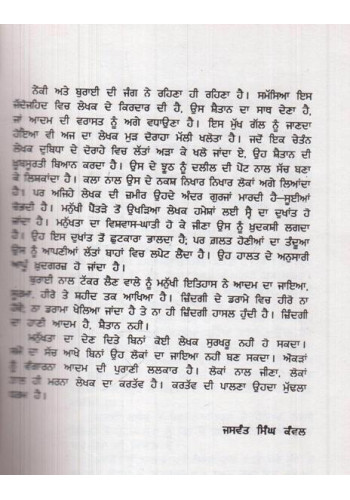 ਨੇਕੀ ਅਤੇ ਬੁਰਾਈ ਦੀ ਜੰਗ ਨੇ ਰਹਿਣਾ ਹੀ ਰਹਿਣਾ ਹੈ। ਸਮੱਸਿਆ ਇਸ
ਜੱਦੋਜਹਿਦ ਵਿਚ ਲੇਖਕ ਦੇ ਕਿਰਦਾਰ ਦੀ ਹੈ, ਉਸ ਸ਼ੈਤਾਨ ਦਾ ਸਾਥ ਦੇਣਾ ਹੈ,
ਜਾਂ ਆਦਮ ਦੀ ਵਰਾਸਤ ਨੂੰ ਅਗੇ ਵਧਾਉਣਾ ਹੈ। ਇਸ ਮੁੱਖ ਗੱਲ ਨੂੰ ਜਾਣਦਾ
ਹੋਇਆ ਵੀ ਅਜ ਦਾ ਲੇਖਕ ਮੁੜ ਦੋਰਾਹਾ ਮੱਲੀ ਖਲੋਤਾ ਹੈ। ਜਦੋਂ ਇਕ ਚੇਤੰਨ
ਲੇਖਕ ਦੁਬਿਧਾ ਦੇ ਦੋਰਾਹੇ ਵਿਚ ਲੱਤਾਂ ਅੜਾ ਕੇ ਖਲੋ ਜਾਂਦਾ ਏ, ਉਹ ਸ਼ੈਤਾਨ ਦੀ
ਖੂਬਸੂਰਤੀ ਬਿਆਨ ਕਰਦਾ ਹੈ। ਉਸ ਦੇ ਝੂਠ ਨੂੰ ਦਲੀਲ ਦੀ ਪੇਂਟ ਨਾਲ ਸੱਚ ਬਣਾ
ਕੇ ਲਿਸ਼ਕਾਂਦਾ ਹੈ। ਕਲਾ ਨਾਲ ਉਸ ਦੇ ਨਕਸ਼ ਨਿਖਾਰ ਨਿਖਾਰ ਲੋਕਾਂ ਅਗੇ ਲਿਆਂਦਾ
ਹੈ। ਪਰ ਅਜਿਹੇ ਲੇਖਕ ਦੀ ਜ਼ਮੀਰ ਉਹਦੇ ਅੰਦਰ ਗੁਰਜਾਂ ਮਾਰਦੀ ਹੈ–ਸੂਈਆਂ
ਚੋਭਦੀ ਹੈ। ਮਨੁੱਖੀ ਪੈਂਤੜੇ ਤੋਂ ਉਖੜਿਆ ਲੇਖਕ ਹਮੇਸ਼ਾਂ ਲਈ ਸ੍ਵੈ ਦਾ ਦੁਖਾਂਤ ਹੋ
ਜਾਂਦਾ ਹੈ। ਮਨੁੱਖਤਾ ਦਾ ਵਿਸ਼ਵਾਸ-ਘਾਤੀ ਹੋ ਕੇ ਜੀਣਾ ਉਸ ਨੂੰ ਖ਼ੁਦਕਸ਼ੀ ਲਗਦਾ
ਹੈ। ਉਹ ਇਸ ਦੁਖਾਂਤ ਤੋਂ ਛੁਟਕਾਰਾ ਭਾਲਦਾ ਹੈ; ਪਰ ਗ਼ਲਤ ਹੋਣੀਆਂ ਦਾ ਤੰਦੂਆ
ਉਸ ਨੂੰ ਆਪਣੀਆਂ ਲੱਤਾਂ ਬਾਹਾਂ ਵਿਚ ਲਪੇਟ ਲੈਂਦਾ ਹੈ। ਉਹ ਹਾਲਤ ਦੇ ਅਨੁਸਾਰੀ
ਆਪੂੰ ਖ਼ੁਦਗਰਜ਼ ਹੋ ਜਾਂਦਾ ਹੈ।
ਬੁਰਾਈ ਨਾਲ ਟੱਕਰ ਲੈਣ ਵਾਲੇ ਨੂੰ ਮਨੁੱਖੀ ਇਤਿਹਾਸ ਨੇ ਆਦਮ ਦਾ ਜਾਇਆ,
ਸੂਰਮਾ, ਹੀਰੋ ਤੇ ਸ਼ਹੀਦ ਤਕ ਆਖਿਆ ਹੈ। ਜ਼ਿੰਦਗੀ ਦੇ ਡਰਾਮੇ ਵਿਚ ਹੀਰੋ ਨਾ
ਹੋਵੇ; ਨਾ ਡਰਾਮਾ ਖੇਲਿਆ ਜਾਂਦਾ ਹੈ ਤੇ ਨਾ ਹੀ ਜ਼ਿੰਦਗੀ ਹਾਸਲ ਹੁੰਦੀ ਹੈ। ਜ਼ਿੰਦਗੀ
ਦਾ ਹਾਣੀ ਆਦਮ ਹੈ, ਸ਼ੈਤਾਨ ਨਹੀਂ।
ਮਨੁੱਖਤਾ ਦਾ ਦੇਣ ਦਿਤੇ ਬਿਨਾਂ ਕੋਈ ਲੇਖਕ ਸੁਰਖਰੂ ਨਹੀਂ ਹੋ ਸਕਦਾ।
ਸਮੇਂ ਦਾ ਸੱਚ ਆਖੇ ਬਿਨਾਂ ਉਹ ਲੋਕਾਂ ਦਾ ਜਾਇਆ ਨਹੀਂ ਬਣ ਸਕਦਾ। ਔਕੜਾਂ
ਨੂੰ ਵੰਗਾਰਨਾ ਆਦਮ ਦੀ ਪੁਰਾਣੀ ਲਲਕਾਰ ਹੈ। ਲੋਕਾਂ ਨਾਲ ਜੀਣਾ, ਲੋਕਾਂ
ਨਾਲ ਹੀ ਮਰਨਾ ਲੇਖਕ ਦਾ ਕਰਤੱਵ ਹੈ। ਕਰਤੱਵ ਦੀ ਪਾਲਣਾ ਉਹਦਾ ਮੁੱਢਲਾ
ਧਰਮ ਹੈ।
ਜਸਵੰਤ ਸਿੰਘ ਕੰਵਲ